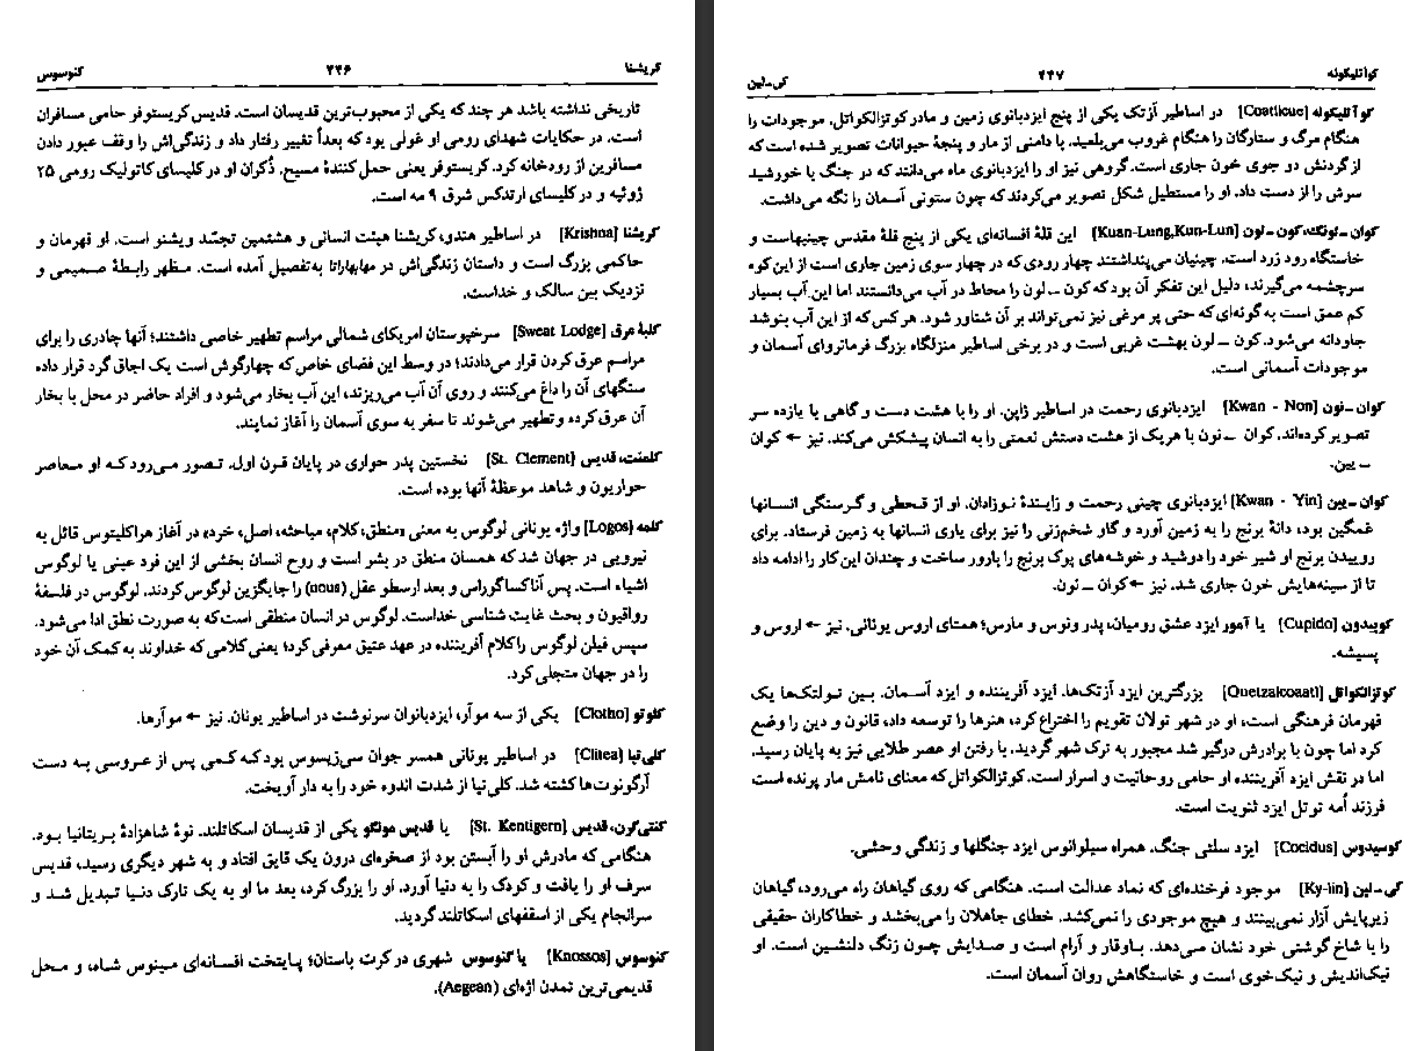 کریشنا ۴۴۶ کنوسوس
تاریخی نداشته باشد هر چند که یکی از محبوب‌ترین قدیسان است. قدیس کریستوفر حامی مسافران
است. در حکایات شهدای رومی او غولی بود که بعداً تغییر رفتار داد و زندگی‌اش را وقف عبور دادن
مسافرین از رودخانه کرد. کریستوفر یعنی حمل کنندهٔ مسیح. ذُکران او در کلیسای کاتولیک رومی ۲۵
ژوئیه و در کلیسای ارتدکس شرق ۹ مه است.
کریشنا [Krishna] در اساطیر هندو، کریشنا هیئت انسانی و هشتمین تجسّد ویشنو است. او قهرمان و
حاکمی بزرگ است و داستان زندگی‌اش در مهابهاراتا به‌تفصیل آمده است. مظهر رابطهٔ صمیمی و
نزدیک بین سالک و خداست.
کلبهٔ عرق [Sweat Lodge] سرخپوستان امریکای شمالی مراسم تطهیر خاصی داشتند؛ آنها چادری را برای
مراسم عرق کردن قرار می‌دادند؛ در وسط این فضای خاص که چهارگوش است یک اجاق گرد قرار داده
سنگهای آن را داغ می‌کنند و روی آن آب می‌ریزند، این آب بخار می‌شود و افراد حاضر در محل با بخار
آن عرق کرده و تطهیر می‌شوند تا سفر به سوی آسمان را آغاز نمایند.
کلمنت، قدیس [St. Clement] نخستین پدر حواری در پایان قرن اول. تصور می‌رود که او معاصر
حواریون و شاهد موعظهٔ آنها بوده است.
کلمه [Logos] واژه یونانی لوگوس به معنی «منطق، کلام، مباحثه، اصل، خرد» در آغاز هراکلیتوس قائل به
نیرویی در جهان شد که همسان منطق در بشر است و روح انسان بخشی از این فرد عینی یا لوگوس
اشیاء است. پس آناکساگوراس و بعد ارسطو عقل (nous) را جایگزین لوگوس کردند. لوگوس در فلسفهٔ
رواقیون و بحث غایت شناسی خداست. لوگوس در انسان منطقی است که به صورت نطق ادا می‌شود.
سپس فیلن لوگوس را کلام آفریننده در عهد عتیق معرفی کرد؛ یعنی کلامی که خداوند به کمک آن خود
را در جهان متجلی کرد.
کلوتو [Clotho] یکی از سه موآر، ایزدبانوان سرنوشت در اساطیر یونان. نیز ← موآرها.
کلی‌تیا [Clitea] در اساطیر یونانی همسر جوان سی‌زیسوس بود که کمی پس از عروسی به دست
آرگونوت‌ها کشته شد. کلی‌تیا از شدت اندوه خود را به دار آویخت.
کنتی‌گرن، قدیس [St. Kentigern] یا قدیس مونگو یکی از قدیسان اسکاتلند. نوهٔ شاهزادهٔ بریتانیا بود.
هنگامی که مادرش او را آبستن بود از صخره‌ای درون یک قایق افتاد و به شهر دیگری رسید، قدیس
سرف او را یافت و کودک را به دنیا آورد. او را بزرگ کرد، بعد ما او به یک تارک دنیا تبدیل شد و
سرانجام یکی از اسقفهای اسکاتلند گردید.
کنوسوس [Knossos] یا کنوسوس شهری در کرت باستان؛ پایتخت افسانه‌ای مینوس شاه، و محل
قدیمی‌ترین تمدن اژه‌ای (Aegean).
کوآتلیکوئه ۴۴۷ کی‌ـ‌لین
کوآتلیکوئه [Coatlicue] در اساطیر آزتک یکی از پنج ایزدبانوی زمین و مادر کوتزالکواتل. موجودات را
هنگام مرگ و ستارگان را هنگام غروب می‌بلعید. با دامنی از مار و پنجهٔ حیوانات تصویر شده است که
از گردنش دو جوی خون جاری است. گروهی نیز او را ایزدبانوی ماه می‌دانند که در جنگ با خورشید
سرش را از دست داد. او را مستطیل شکل تصویر می‌کردند که چون ستونی آسمان را نگه می‌داشت.
کوان ـ لونگ، کون ـ لون [Kuan-Lung,Kun-Lun] این قلهٔ افسانه‌ای یکی از پنج قلهٔ مقدس چینیهاست و
خاستگاه رود زرد است. چینیان می‌پنداشتند چهار رودی که در چهار سوی زمین جاری است از این کوه
سرچشمه می‌گیرند، دلیل این تفکر آن بود که کون ـ لون را محاط در آب می‌دانستند اما این آب بسیار
کم عمق است به گونه‌ای که حتی پر مرغی نیز نمی‌تواند بر آن شناور شود. هر کس که از این آب بنوشد
جاودانه می‌شود. کون ـ لون بهشت غربی است و در برخی اساطیر منزلگاه بزرگ فرمانروای آسمان و
موجودات آسمانی است.
کوان ـ نون [Kwan - Non] ایزدبانوی رحمت در اساطیر ژاپن. او را با هشت دست و گاهی با یازده سر
تصویر کرده‌اند. کوان ـ نون با هریک از هشت دستش نعمتی را به انسان پیشکش می‌کند. نیز ← کوان
ـ یین.
کوان ـ یین [Kwan - Yin] ایزدبانوی چینی رحمت و زایندهٔ نوزادان. او از قحطی و گرسنگی انسانها
غمگین بود، دانهٔ برنج را به زمین آورد و گاو شخم‌زنی را نیز برای یاری انسانها به زمین فرستاد. برای
روییدن برنج او شیر خود را دوشید و خوشه‌های پوک برنج را بارور ساخت و چندان این کار را ادامه داد
تا از سینه‌هایش خون جاری شد. نیز ← کوان ـ نون.
کوپیدون [Cupido] یا آمور ایزد عشق رومیان، پدر ونوس و مارس؛ همتای اروس یونانی. نیز ← اروس و
پسیشه.
کوتزالکواتل [Quetzalcoaatl] بزرگترین ایزد آزتک‌ها. ایزد آفریننده و ایزد آسمان. بین تولتک‌ها یک
قهرمان فرهنگی است، او در شهر تولان تقویم را اختراع کرد، هنرها را توسعه داد، قانون و دین را وضع
کرد اما چون با برادرش درگیر شد مجبور به ترک شهر گردید. با رفتن او عصر طلایی نیز به پایان رسید.
اما در نقش ایزد آفریننده او حامی روحانیت و اسرار است. کوتزالکواتل که معنای نامش مار پرنده است
فرزند اُمه توتل ایزد ثنویت است.
کوسیدوس [Cocidus] ایزد سلتی جنگ. همراه سیلوانوس ایزد جنگلها و زندگی وحشی.
کی ـ لین [Ky-lin] موجود فرخنده‌ای که نماد عدالت است. هنگامی که روی گیاهان راه می‌رود، گیاهان
زیرپایش آزار نمی‌بینند و هیچ موجودی را نمی‌کشد. خطای جاهلان را می‌بخشد و خطاکاران حقیقی
را با شاخ گوشتی خود نشان می‌دهد. باوقار و آرام است و صدایش چون زنگ دلنشین است. او
نیک‌اندیش و نیک‌خوی است و خاستگاهش روان آسمان است.